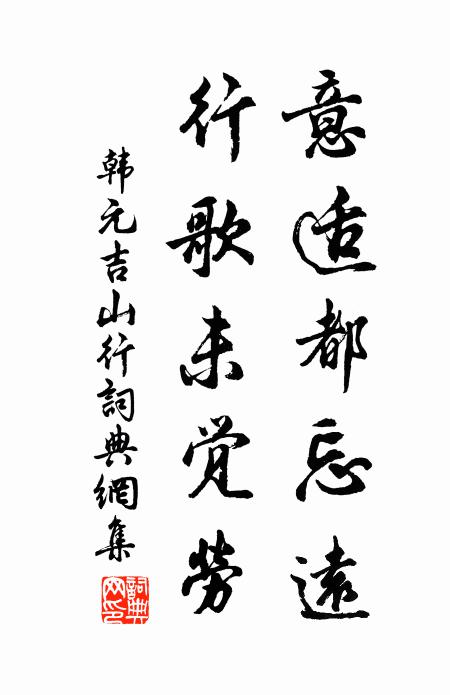 意适都忘遠
行歌未觉勞
韩元吉山行詞典網集
詞典网印